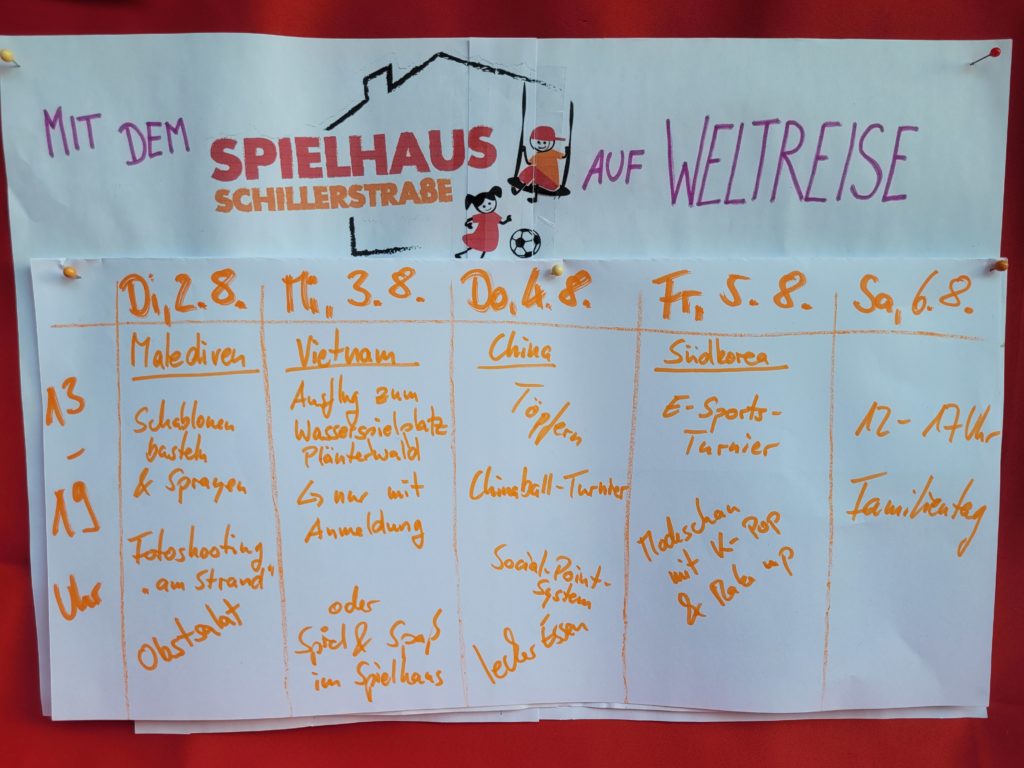 MIT DEM
SPIELHAUS
SCHILLERSTRAßE
AUF WELTREISE
13
–
19
Uhr
Di, 2.8.
Malediven
Schablonen
basteln
& Sprayen
Fotoshooting
"am Strand"
Obstsalat
Mi, 3.8.
Vietnam
Ausflug zum
Wasserspielplatz
Plänterwald
↳ nur mit
Anmeldung
oder
Spiel & Spaß
im Spielhaus
Do, 4.8.
China
Töpfern
Chinaball-Turnier
Social-Point-
System
lecker Essen
Fr, 5.8.
Südkorea
E-Sports-
Turnier
Modeschau
mit K-Pop
& Make up
Sa, 6.8.
12 – 17 Uhr
Familientag